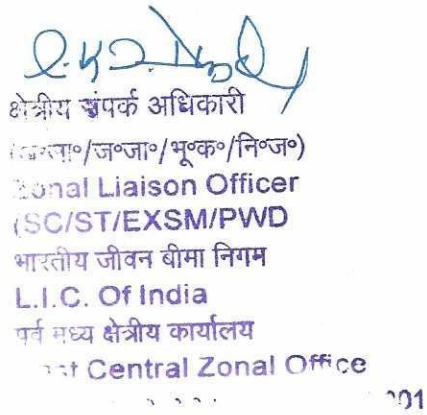 क्षेत्रीय संपर्क अधिकारी
/ज०जा०/भू०क०/नि०ज०)
Zonal Liaison Officer
(SC/ST/EXSM/PWD
भारतीय जीवन बीमा निगम
L.I.C. Of India
पूर्व मध्य क्षेत्रीय कार्यालय
Central Zonal Office